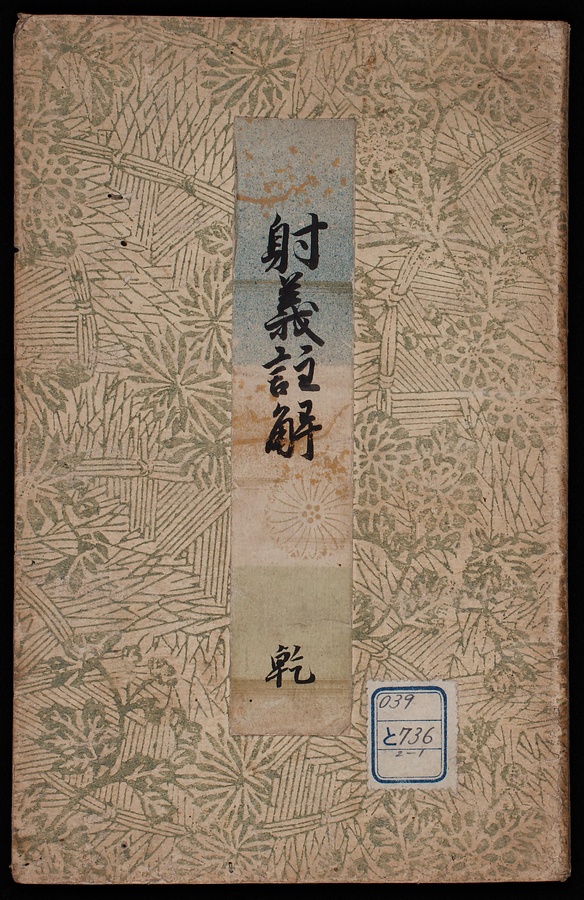 射義註解
乾
039
と736
2-1